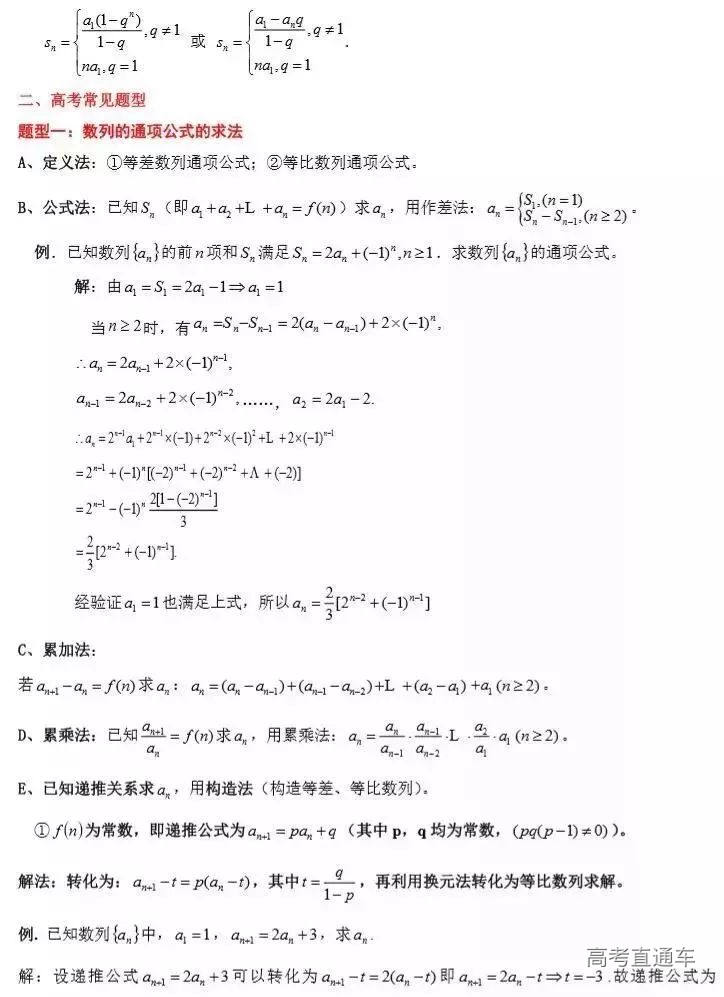 s_n = { a_1(1-q^n)/(1-q), q≠1; na_1, q=1 或 s_n = { (a_1-a_nq)/(1-q), q≠1; na_1, q=1 .
二、高考常见题型
题型一：数列的通项公式的求法
A、定义法：①等差数列通项公式；②等比数列通项公式。
B、公式法：已知S_n（即a_1+a_2+L +a_n=f(n)）求a_n，用作差法：a_n={S_1,(n=1); S_n-S_{n-1},(n≥2)。
例．已知数列{a_n}的前n项和S_n满足S_n=2a_n+(-1)^n,n≥1．求数列{a_n}的通项公式。
解：由a_1=S_1=2a_1-1⇒a_1=1
当n≥2时，有a_n=S_n-S_{n-1}=2(a_n-a_{n-1})+2×(-1)^n,
∴a_n=2a_{n-1}+2×(-1)^{n-1},
a_{n-1}=2a_{n-2}+2×(-1)^{n-2},……，a_2=2a_1-2.
∴a_n=2^{n-1}a_1+2^{n-1}×(-1)+2^{n-2}×(-1)^2+L +2×(-1)^{n-1}
=2^{n-1}+(-1)^n[(-2)^{n-1}+(-2)^{n-2}+Λ+(-2)]
=2^{n-1}-(-1)^n 2[1-(-2)^{n-1}]/3
=2/3[2^{n-2}+(-1)^{n-1}].
经验证a_1=1也满足上式，所以a_n=2/3[2^{n-2}+(-1)^{n-1}]
C、累加法：
若a_{n+1}-a_n=f(n)求a_n：a_n=(a_n-a_{n-1})+(a_{n-1}-a_{n-2})+L +(a_2-a_1)+a_1(n≥2)。
D、累乘法：已知a_{n+1}/a_n=f(n)求a_n，用累乘法：a_n=a_n/a_{n-1}·a_{n-1}/a_{n-2}·L ·a_2/a_1·a_1(n≥2)。
E、已知递推关系求a_n，用构造法（构造等差、等比数列）。
①f(n)为常数，即递推公式为a_{n+1}=pa_n+q（其中p，q均为常数，(pq(p-1)≠0)）。
解法：转化为：a_{n+1}-t=p(a_n-t)，其中t=q/(1-p)，再利用换元法转化为等比数列求解。
例. 已知数列{a_n}中，a_1=1，a_{n+1}=2a_n+3，求a_n.
解：设递推公式a_{n+1}=2a_n+3可以转化为a_{n+1}-t=2(a_n-t)即a_{n+1}=2a_n-t⇒t=-3.故递推公式为
高考直通车